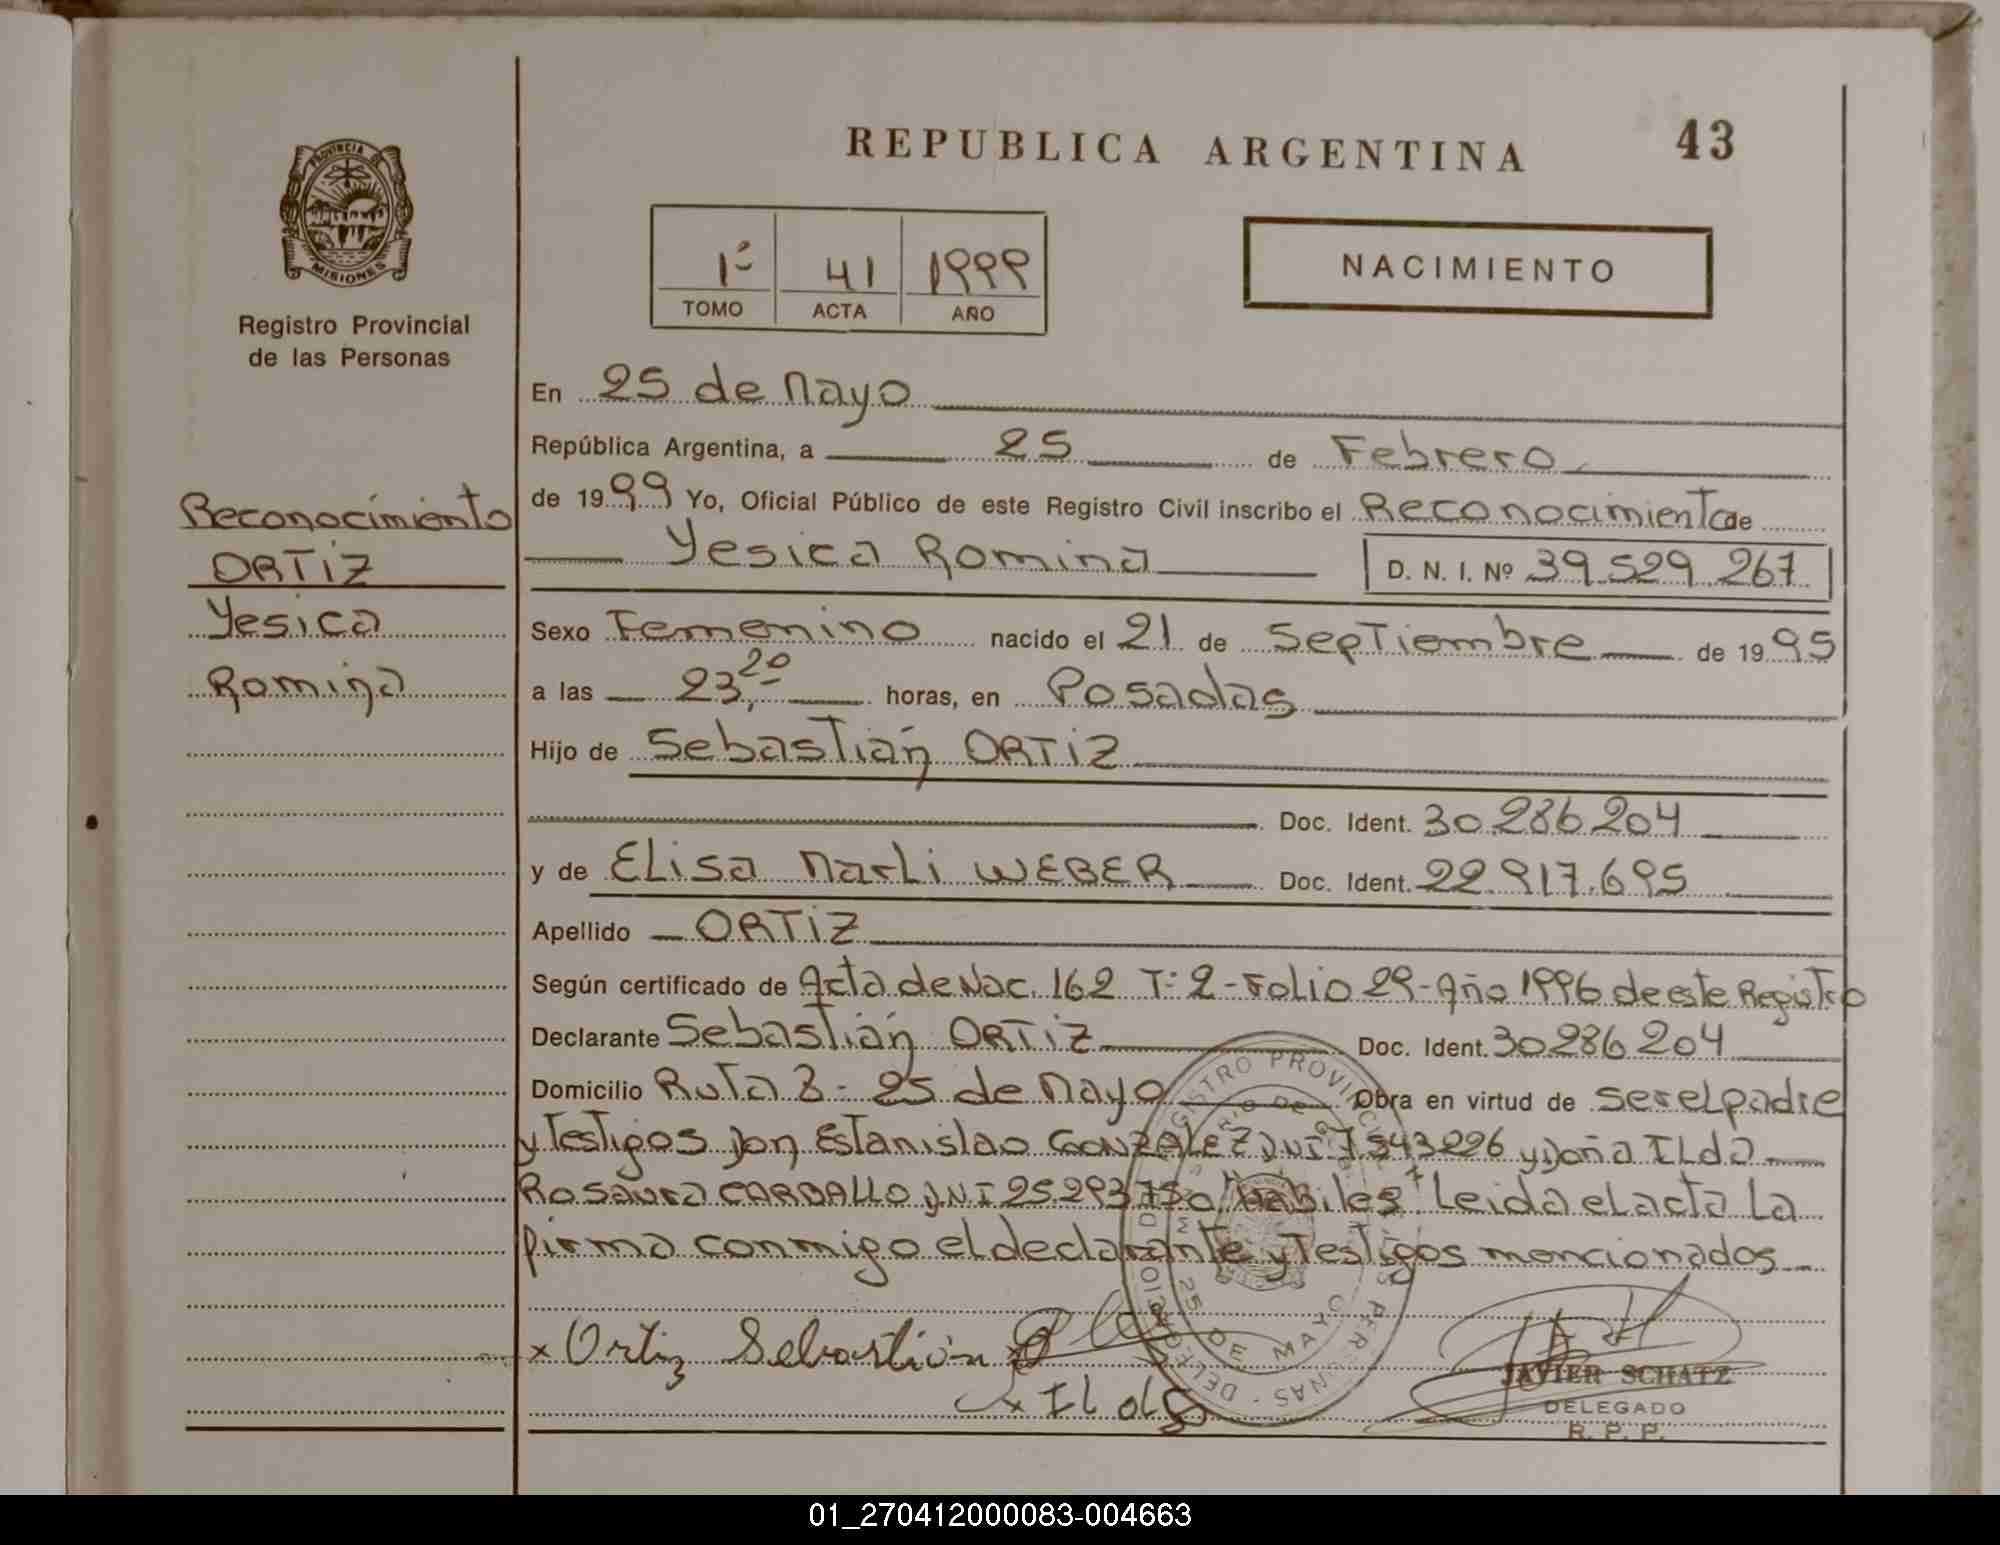 REPUBLICA ARGENTINA
43
PROVINCIA DE
MISIONES
Registro Provincial
de las Personas
1º 41 1999
TOMO ACTA AÑO
NACIMIENTO
En 25 de Mayo
República Argentina, a 25 de Febrero
de 1999 Yo, Oficial Público de este Registro Civil inscribo el Reconocimiento de
Yesica Romina D. N. I. Nº 39.529.267
Reconocimiento
ORTIZ
Yesica
Romina
Sexo Femenino nacido el 21 de Septiembre de 1995
a las 23,20 horas, en Posadas
Hijo de Sebastián ORTIZ
Doc. Ident. 30.286.204
y de Elisa Marli WEBER Doc. Ident. 22.917.695
Apellido ORTIZ
Según certificado de Acta de Nac. 162 T: 2 - Folio 29 - Año 1996 de este Registro
Declarante Sebastián ORTIZ Doc. Ident. 30.286.204
Domicilio Ruta 8 - 25 de Mayo Obra en virtud de ser el padre
y testigos Don Estanislao GONZALEZ DNI 7.543.226 y Doña ILda
Rosaura CARBALLO DNI 25.293.750, Habiles, Leida el acta La
firma conmigo el declarante y testigos mencionados
x Ortiz Sebastián
x Ilda
REGISTRO PROVINCIAL DE LAS PERSONAS - DELEGACION
25 DE MAYO
JAVIER SCHATZ
DELEGADO
R. P. P.
01_270412000083-004663